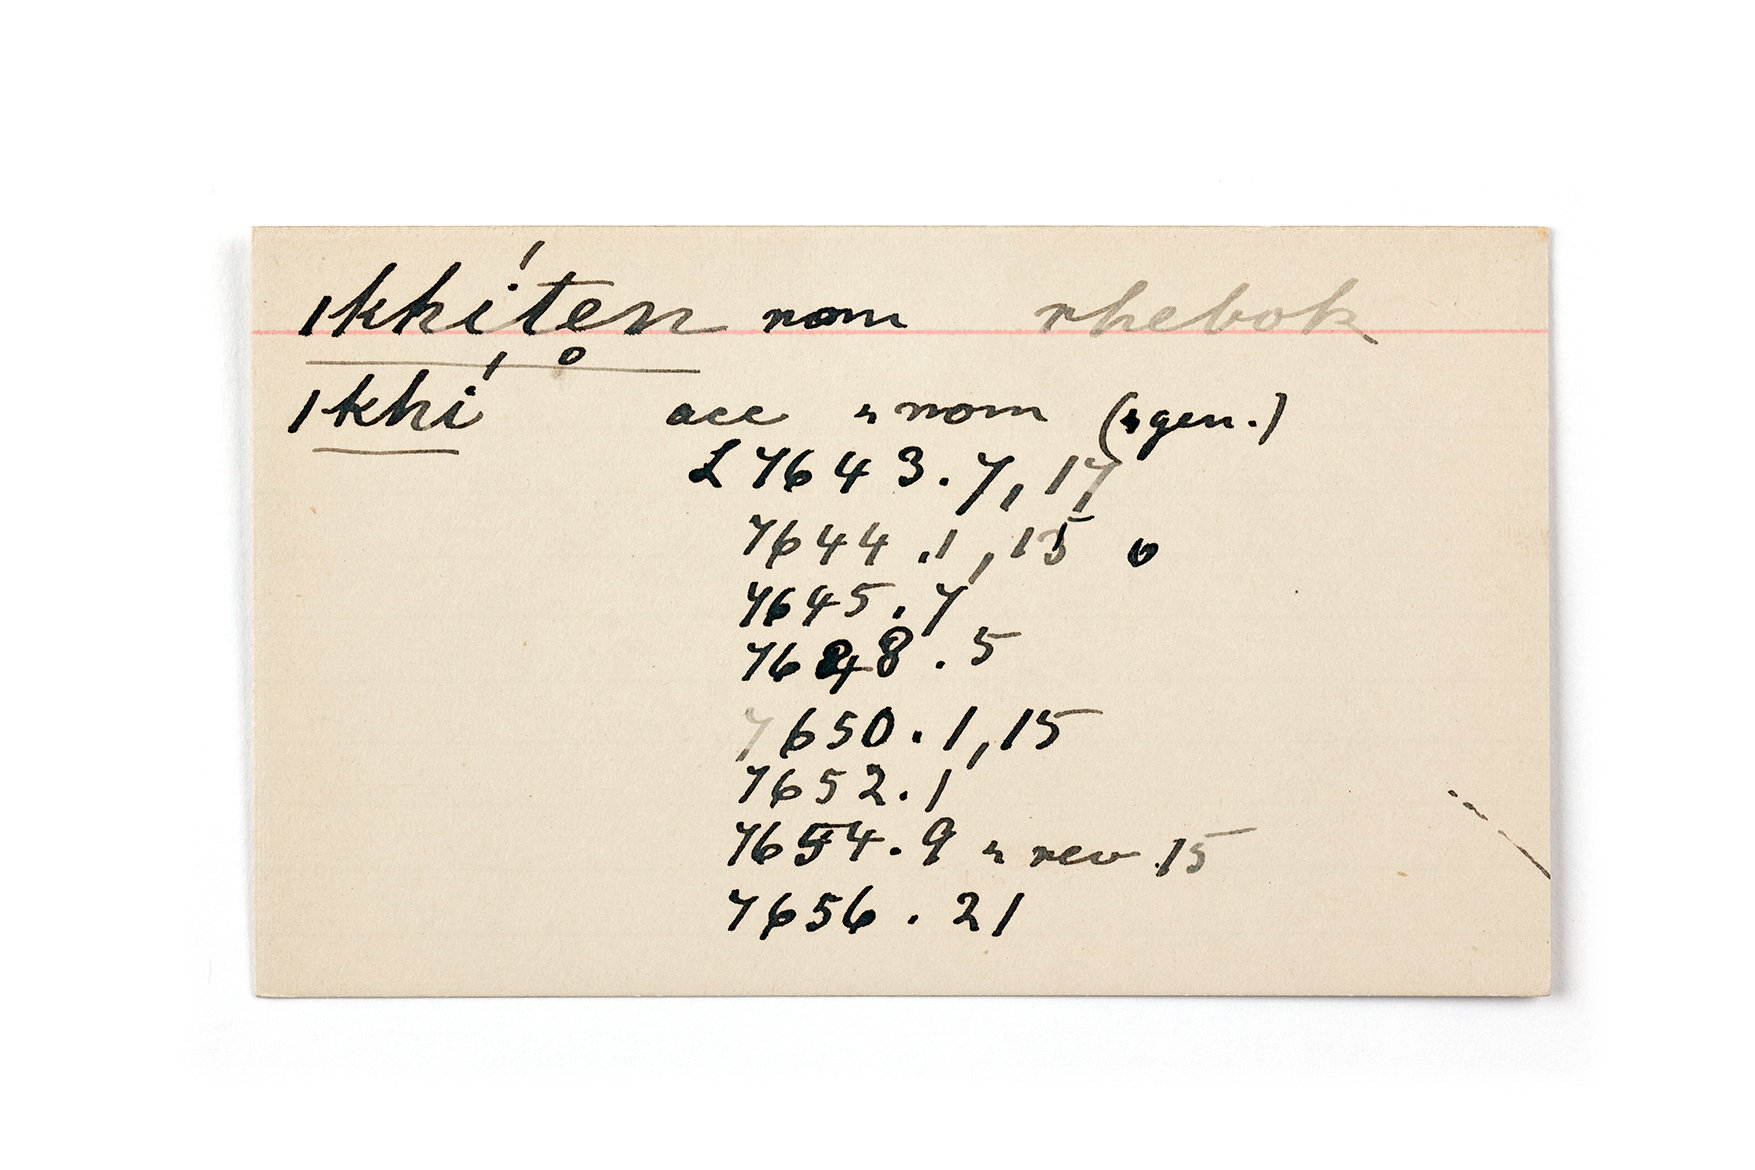 |khíten nom rhebok
|khi acc & nom (& gen.)
L 7643.7, 17
7644.1, 15
7645.7
7648.5
7650.1, 15
7652.1
7654.9 & rev 15
7656.21